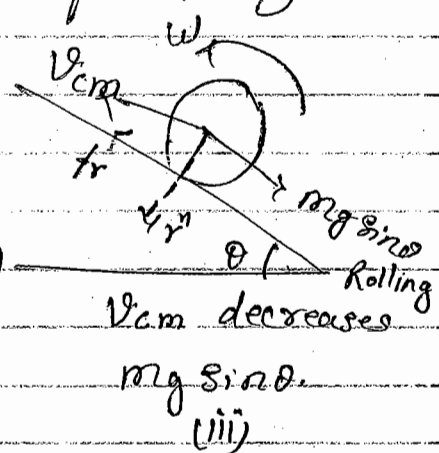 ω
Vcm
fr
r
mg sinθ
θ
Rolling
Vcm decreases
mg sinθ.
(iii)